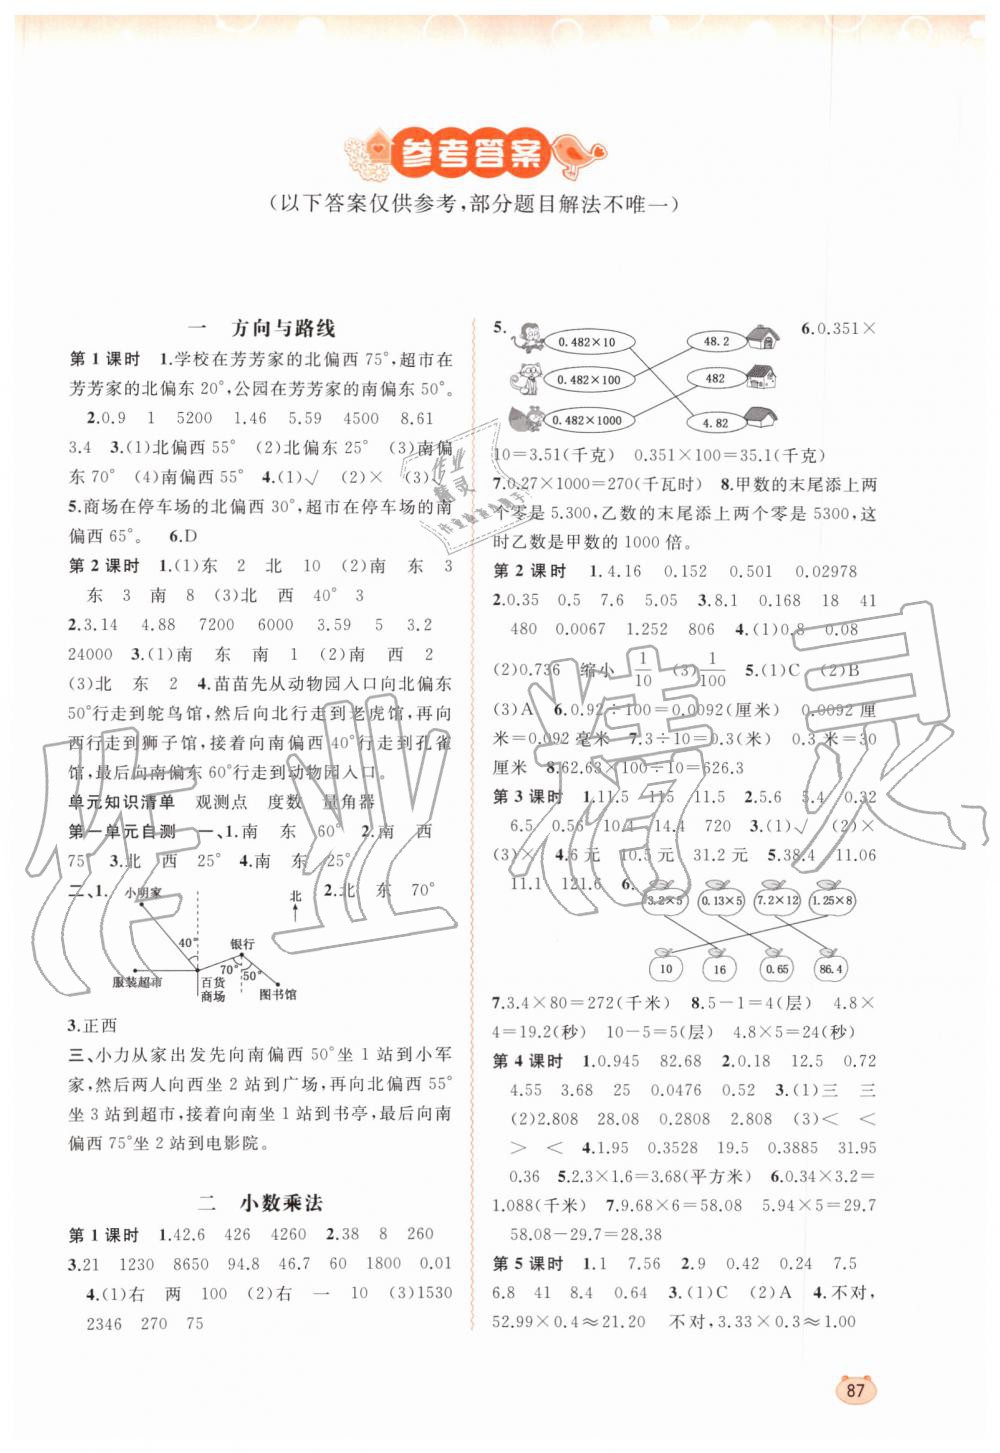 参考答案
(以下答案仅供参考,部分题目解法不唯一)
一 方向与路线
第1课时 1.学校在芳芳家的北偏西75°,超市在
芳芳家的北偏东20°,公园在芳芳家的南偏东50°。
2.0.9 1 5200 1.46 5.59 4500 8.61
3.4 3.(1)北偏西55° (2)北偏东25° (3)南偏
东70° (4)南偏西55° 4.(1)√ (2)× (3)√
5.商场在停车场的北偏西30°,超市在停车场的南
偏西65°。 6.D
第2课时 1.(1)东 2 北 10 (2)南 东 3
东 3 南 8 (3)北 西 40° 3
2.3.14 4.88 7200 6000 3.59 5 3.2
24000 3.(1)南 东 南 1 (2)南 西 2
(3)北 东 2 4.苗苗先从动物园入口向北偏东
50°行走到鸵鸟馆,然后向北行走到老虎馆,再向
西行走到狮子馆,接着向南偏西40°行走到孔雀
馆,最后向南偏东60°行走到动物园入口。
单元知识清单 观测点 度数 量角器
第一单元自测 一、1.南 东 60° 2.南 西
75° 3.北 西 25° 4.南 东 25°
二、1. 小明家 北 2.北 东 70°
40° 银行
70° 50°
服装超市 百货商场 图书馆
3.正西
三、小力从家出发先向南偏西50°坐1站到小军
家,然后两人向西坐2站到广场,再向北偏西55°
坐3站到超市,接着向南坐1站到书亭,最后向南
偏西75°坐2站到电影院。
二 小数乘法
第1课时 1.42.6 426 4260 2.38 8 260
3.21 1230 8650 94.8 46.7 60 1800 0.01
4.(1)右 两 100 (2)右 一 10 (3)1530
2346 270 75
5. 0.482×10 48.2 6.0.351×
0.482×100 482
0.482×1000 4.82
10=3.51(千克) 0.351×100=35.1(千克)
7.0.27×1000=270(千瓦时) 8.甲数的末尾添上两
个零是5.300,乙数的末尾添上两个零是5300,这
时乙数是甲数的1000倍。
第2课时 1.4.16 0.152 0.501 0.02978
2.0.35 0.5 7.6 5.05 3.8.1 0.168 18 41
480 0.0067 1.252 806 4.(1)0.8 0.08
(2)0.736 缩小 1/10 (3)1/100 5.(1)C (2)B
(3)A 6.0.92÷100=0.0092(厘米) 0.0092厘
米=0.092毫米 7.3÷10=0.3(米) 0.3米=30
厘米 8.62.63×100÷10=626.3
第3课时 1.11.5 115 11.5 2.5.6 5.4 0.32
6.5 0.56 10.4 14.4 720 3.(1)√ (2)×
(3)× 4.6元 10.5元 31.2元 5.38.4 11.06
11.1 121.6 6. 3.2×5 0.13×5 7.2×12 1.25×8
10 16 0.65 86.4
7.3.4×80=272(千米) 8.5-1=4(层) 4.8×
4=19.2(秒) 10-5=5(层) 4.8×5=24(秒)
第4课时 1.0.945 82.68 2.0.18 12.5 0.72
4.55 3.68 25 0.0476 0.52 3.(1)三 三
(2)2.808 28.08 0.2808 2.808 (3)< <
> < 4.1.95 0.3528 19.5 0.3885 31.95
0.36 5.2.3×1.6=3.68(平方米) 6.0.34×3.2=
1.088(千米) 7.9.68×6=58.08 5.94×5=29.7
58.08-29.7=28.38
第5课时 1.1 7.56 2.9 0.42 0.24 7.5
6.8 41 8.4 0.64 3.(1)C (2)A 4.不对,
52.99×0.4≈21.20 不对,3.33×0.3≈1.00
87
作业精灵